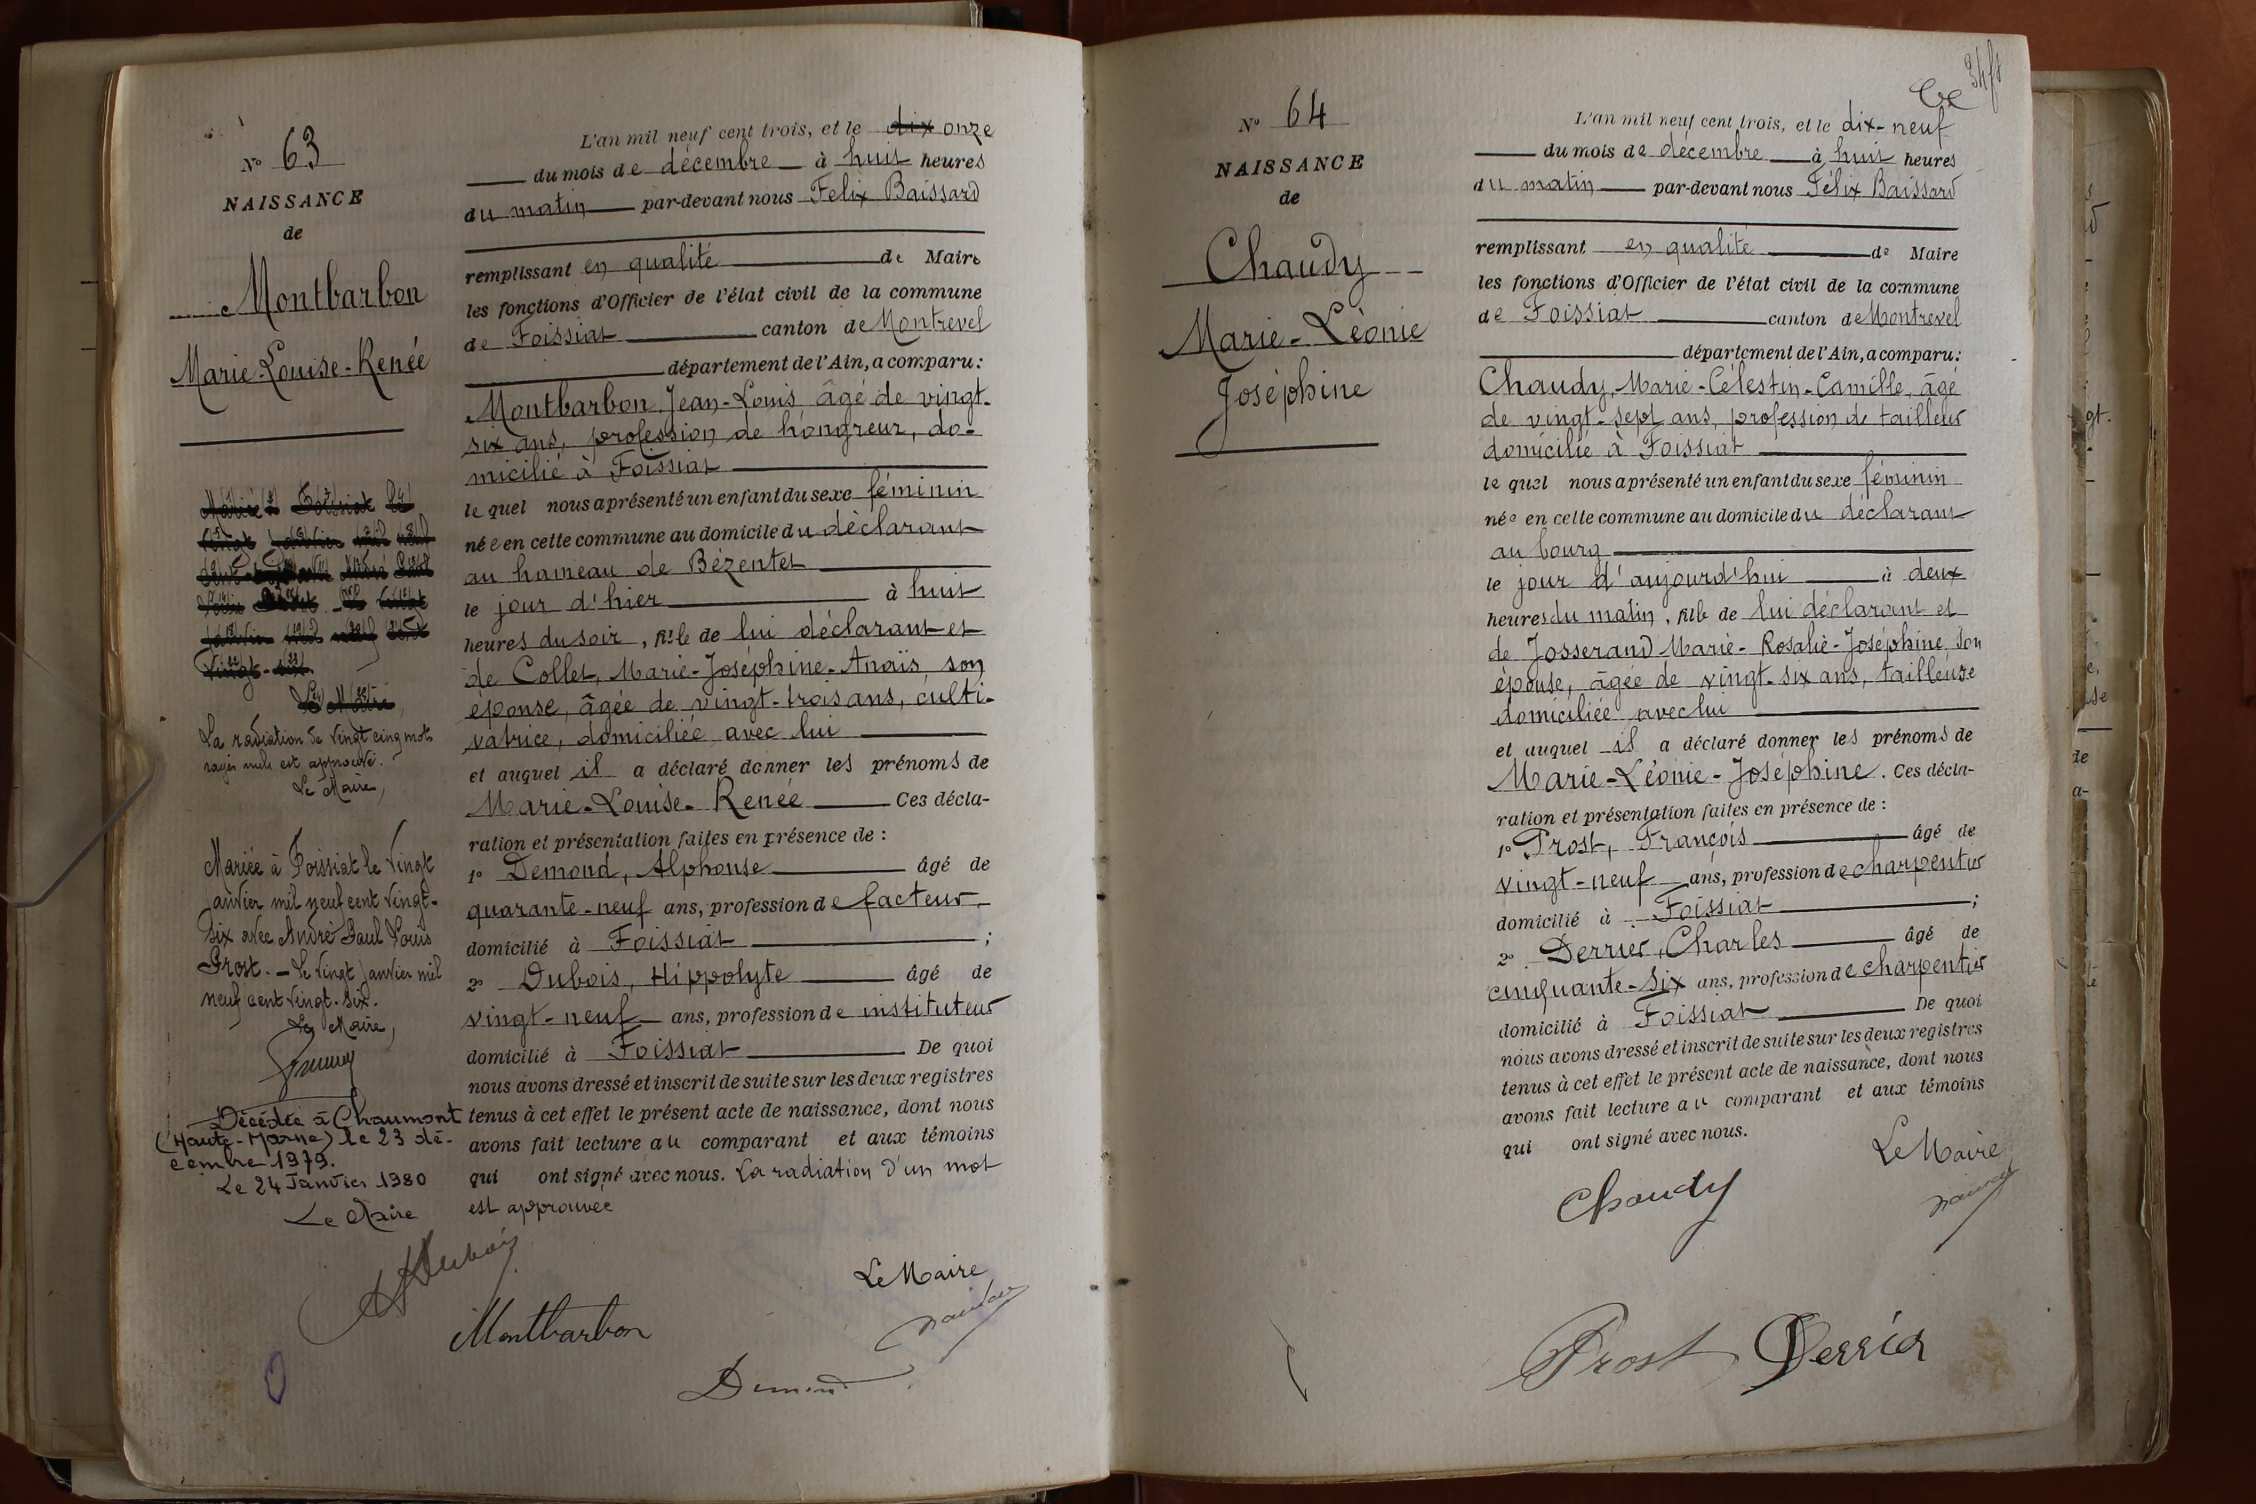 N° 63
NAISSANCE
de
Montbarbon
Marie-Louise-Renée
La radiation de vingt cinq mots
rayés nuls est approuvée.
Le Maire,
Mariée à Foissiat le vingt
janvier mil neuf cent vingt-
six avec André Paul Louis
Prost. - Le vingt janvier mil
neuf cent vingt-six.
Le Maire,
Décédée à Chaumont
(Haute-Marne) le 23 dé-
cembre 1979.
Le 24 Janvier 1980
Le Maire
L'an mil neuf cent trois, et le dix onze
du mois de décembre à huit heures
du matin par-devant nous Félix Baissard
remplissant en qualité de Maire
les fonctions d'Officier de l'état civil de la commune
de Foissiat canton de Montrevel
département de l'Ain, a comparu:
Montbarbon Jean-Louis âgé de vingt-
six ans, profession de hongreur, do-
micilié à Foissiat
le quel nous a présenté un enfant du sexe féminin
née en cette commune au domicile du déclarant
au hameau de Bézentet
le jour d'hier à huit
heures du soir, fille de lui déclarant et
de Collet, Marie-Joséphine-Anaïs, son
épouse, âgée de vingt-trois ans, culti-
vatrice, domiciliée avec lui
et auquel il a déclaré donner les prénoms de
Marie-Louise-Renée Ces décla-
ration et présentation faites en présence de :
1° Demond, Alphonse âgé de
quarante-neuf ans, profession de facteur
domicilié à Foissiat ;
2° Dubois, Hippolyte âgé de
vingt-neuf ans, profession de instituteur
domicilié à Foissiat De quoi
nous avons dressé et inscrit de suite sur les deux registres
tenus à cet effet le présent acte de naissance, dont nous
avons fait lecture au comparant et aux témoins
qui ont signé avec nous. La radiation d'un mot
est approuvée
HDubois
Le Maire
Montbarbon
Demond
N° 64
NAISSANCE
de
Chaudy
Marie-Léonie
Joséphine
L'an mil neuf cent trois, et le dix-neuf
du mois de décembre à huit heures
du matin par-devant nous Félix Baissard
remplissant en qualité de Maire
les fonctions d'Officier de l'état civil de la commune
de Foissiat canton de Montrevel
département de l'Ain, a comparu:
Chaudy, Marie-Célestin-Camille, âgé
de vingt-sept ans, profession de tailleur
domicilié à Foissiat
le quel nous a présenté un enfant du sexe féminin
née en cette commune au domicile du déclarant
au bourg
le jour d'aujourd'hui à deux
heures du matin, fille de lui déclarant et
de Josserand Marie-Rosalie-Joséphine son
épouse, âgée de vingt-six ans, tailleuse
domiciliée avec lui
et auquel il a déclaré donner les prénoms de
Marie-Léonie-Joséphine. Ces décla-
ration et présentation faites en présence de :
1° Prost, François âgé de
vingt-neuf ans, profession de charpentier
domicilié à Foissiat ;
2° Derrier, Charles âgé de
cinquante-six ans, profession de charpentier
domicilié à Foissiat De quoi
nous avons dressé et inscrit de suite sur les deux registres
tenus à cet effet le présent acte de naissance, dont nous
avons fait lecture au comparant et aux témoins
qui ont signé avec nous.
Le Maire
Chaudy
Prost Derrier